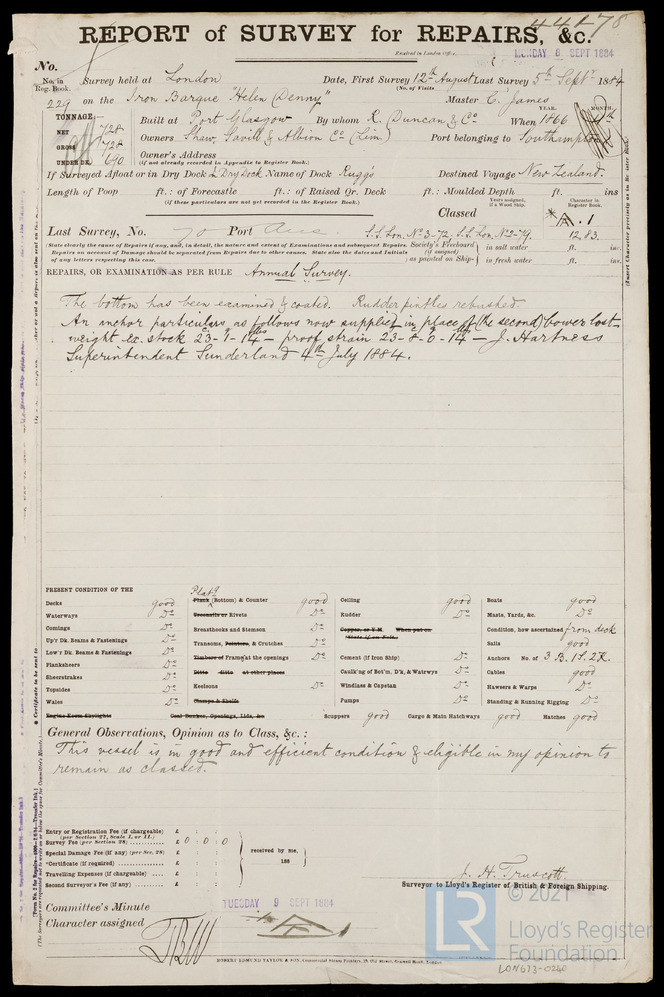 44178
REPORT of SURVEY for REPAIRS, &c.
Received in London Office, MONDAY 8 SEPT 1884
No.
No. in Reg. Book. Survey held at London Date, First Survey 12th August Last Survey 5th Septr 1884
(No. of Visits
229 on the Iron Barque "Helen Denny" Master C. James
TONNAGE: YEAR. MONTH.
NET 728 Built at Port Glasgow By whom R. Duncan & Co When 1866
GROSS 728 Owners Shaw, Savill & Albion Co (Lim) Port belonging to Southampton
UNDER DK. 690 Owner's Address
(if not already recorded in Appendix to Register Book.)
If Surveyed Afloat or in Dry Dock In Dry Dock Name of Dock Ruggs Destined Voyage New Zealand.
Length of Poop ft.: of Forecastle ft.: of Raised Qr. Deck ft.: Moulded Depth ft. ins
(if these particulars are not yet recorded in the Register Book.)
Years assigned, if a Wood Ship. Character in Register Book.
Classed *A.1
Last Survey, No. 70 Port S.S. Lon. No 3-72. S.S. Lon. No 2-79. 12,83
(State clearly the cause of Repairs if any, and, in detail, the nature and extent of Examinations and subsequent Repairs.
Repairs on account of Damage should be separated from Repairs due to other causes. State also the dates and Initials
of any letters respecting this case.
Society's Freeboard (if assigned) as painted on Ship- in salt water ft. ins.
in fresh water ft. in.
REPAIRS, OR EXAMINATION AS PER RULE Annual Survey.
The bottom has been examined & coated. Rudder pintles rebushed.
An anchor particulars as follows now supplied in place of (the second) bower lost-
weight ex. stock 23-1-14 - proof strain 23-8-0-14 - J. Hartness
Superintendent Sunderland 4th July 1884.
PRESENT CONDITION OF THE
Decks good
Waterways Do
Comings Do
Up'r Dk. Beams & Fastenings Do
Low'r Dk. Beams & Fastenings Do
Planksheers Do
Sheerstrakes Do
Topsides Do
Wales Do
Engine Room Skylights
Platg
Plank (Bottom) & Counter good
Treenails or Rivets Do
Breasthooks and Stemson Do
Transoms, Pointers, & Crutches Do
Timbers of Frames at the openings Do
Ditto ditto at other places
Keelsons Do
Clamps & Shelfs
Coal Bunker, Openings, Lids, &c.
Ceiling good
Rudder Do
Copper, or Y.M. When put on
(State if on Felt.
Cement (if Iron Ship) Do
Caulk'ng of Bot'm, D'k, & Watrwys Do
Windlass & Capstan Do
Pumps Do
Scuppers good Cargo & Main Hatchways good Hatches good
Boats good
Masts, Yards, &c. Do
Condition, how ascertained from deck
Sails good
Anchors No. of 3 B. 1 S. 2 K.
Cables good
Hawsers & Warps Do
Standing & Running Rigging Do
General Observations, Opinion as to Class, &c. :
This vessel is in good and efficient condition & eligible in my opinion to
remain as classed.
Entry or Registration Fee (if chargeable) £ : :
(per Section 27, Scale 1, or 11.)
Survey Fee (per Section 28) £ 0 : 0 : 0
Special Damage Fee (if any) (per Sec. 28) £ : :
*Certificate (if required) £ : :
Travelling Expenses (if chargeable) £ : :
Second Surveyor's Fee (if any) £ : :
received by me,
188
J. H. Truscott.
Surveyor to Lloyd's Register of British & Foreign Shipping.
Committee's Minute TUESDAY 9 SEPT 1884
Character assigned
ROBERT EDMUND TAYLOR & SON, Commercial Steam Printers,
© 2021
LR
Lloyd's Register
Foundation
LON673-0240